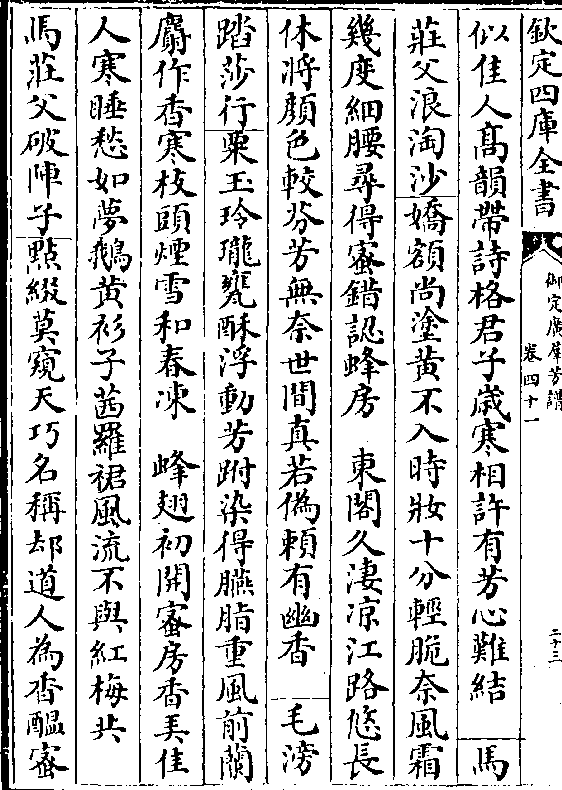 欽定四庫全書
御定廣羣芳譜
卷四十一
二十三
似佳人髙韻帶詩格君子歲寒相許有芳心難結 馬
莊父浪淘沙嬌額尚塗黃不入時妝十分輕脆奈風霜
幾度細腰尋得蜜錯認蜂房 東閣久淒涼江路悠長
休將顏色較芬芳無奈世間真若偽賴有幽香 毛滂
踏莎行栗玉玲瓏甕酥浮動芳跗染得臙脂重風前蘭
麝作香寒枝頭煙雪和春凍 蜂翅初開蜜房香弄佳
人寒睡愁如夢鵝黃衫子茜羅裙風流不與紅梅共
馬莊父破陣子點綴莫窺天巧名稱却道人為香醞蜜